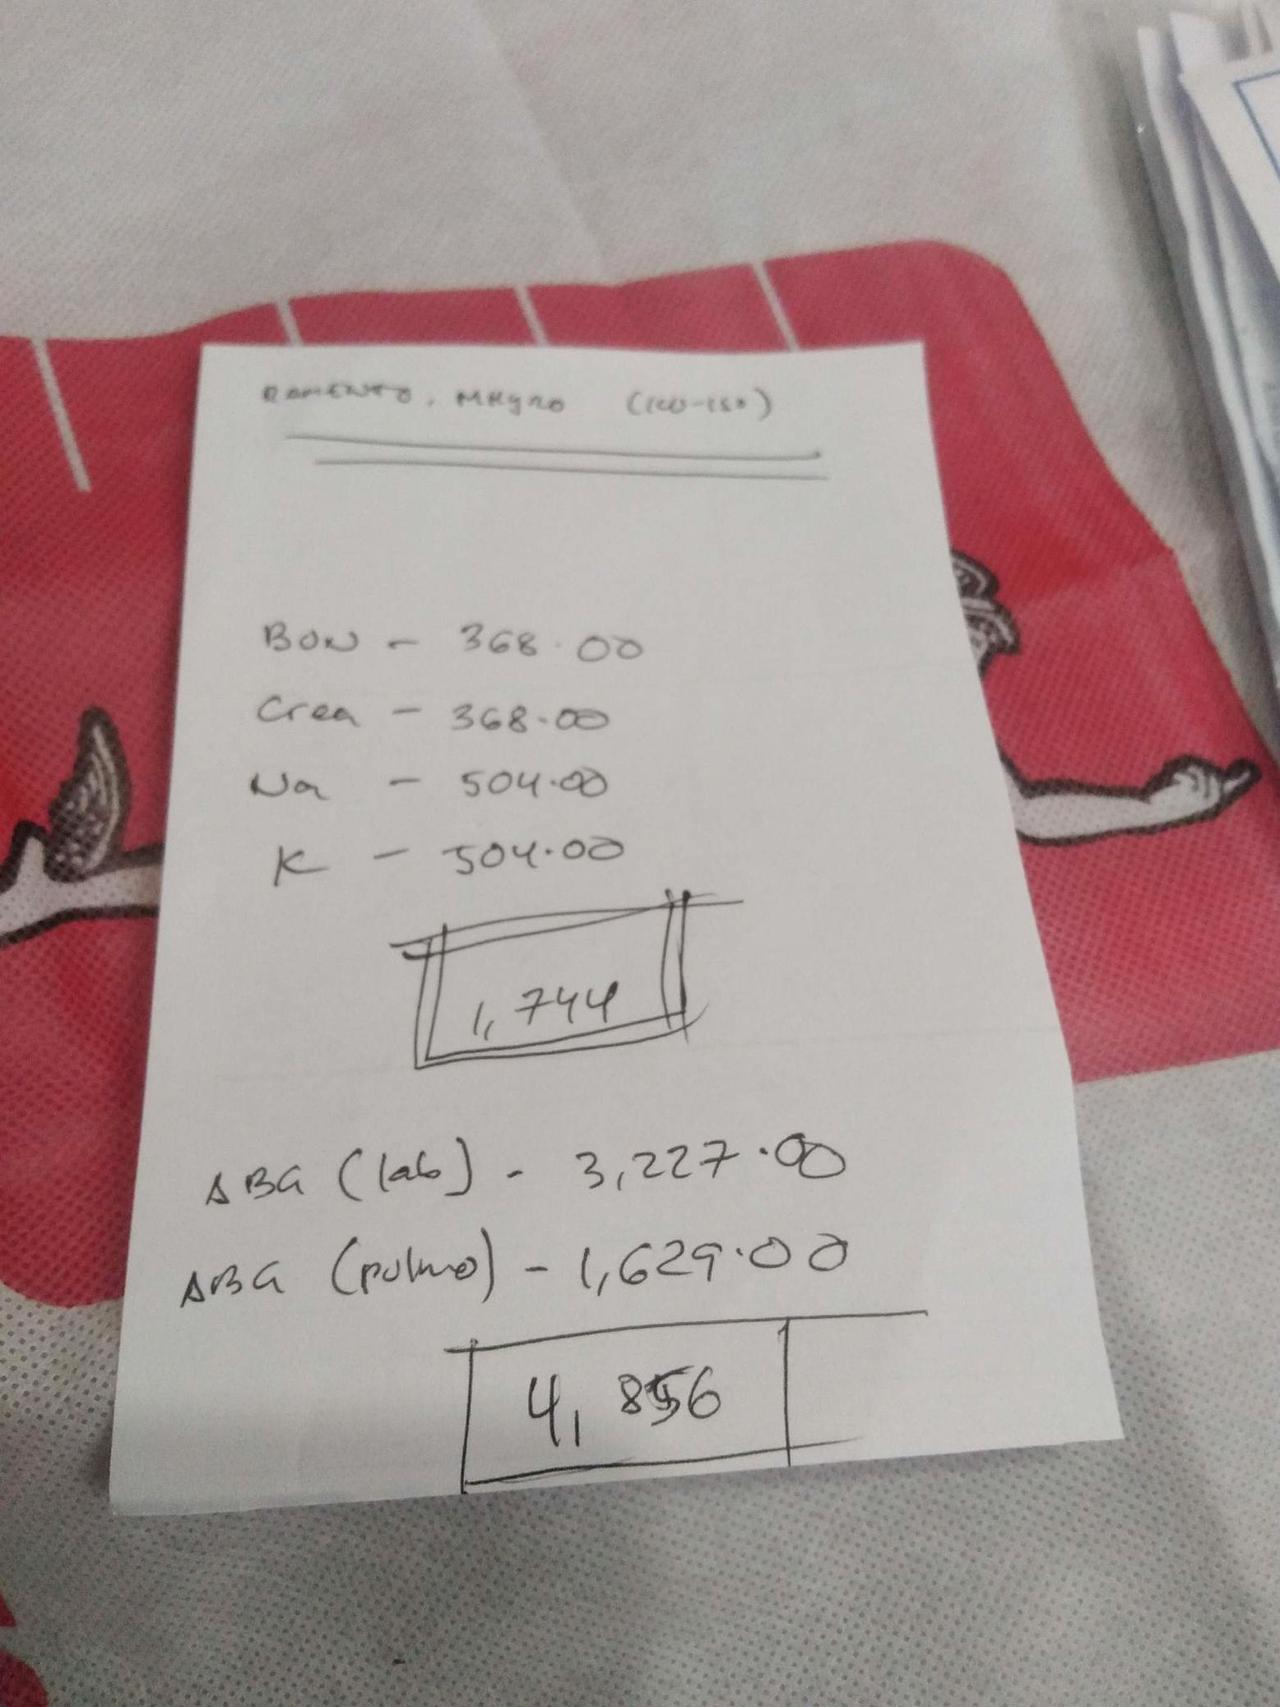 RAMENTO, MHYRO (ICU-ISO)
BUN - 368.00
Crea - 368.00
Na - 504.00
K - 504.00
1,744
ABG (lab) - 3,227.00
ABG (pulmo) - 1,629.00
4,856